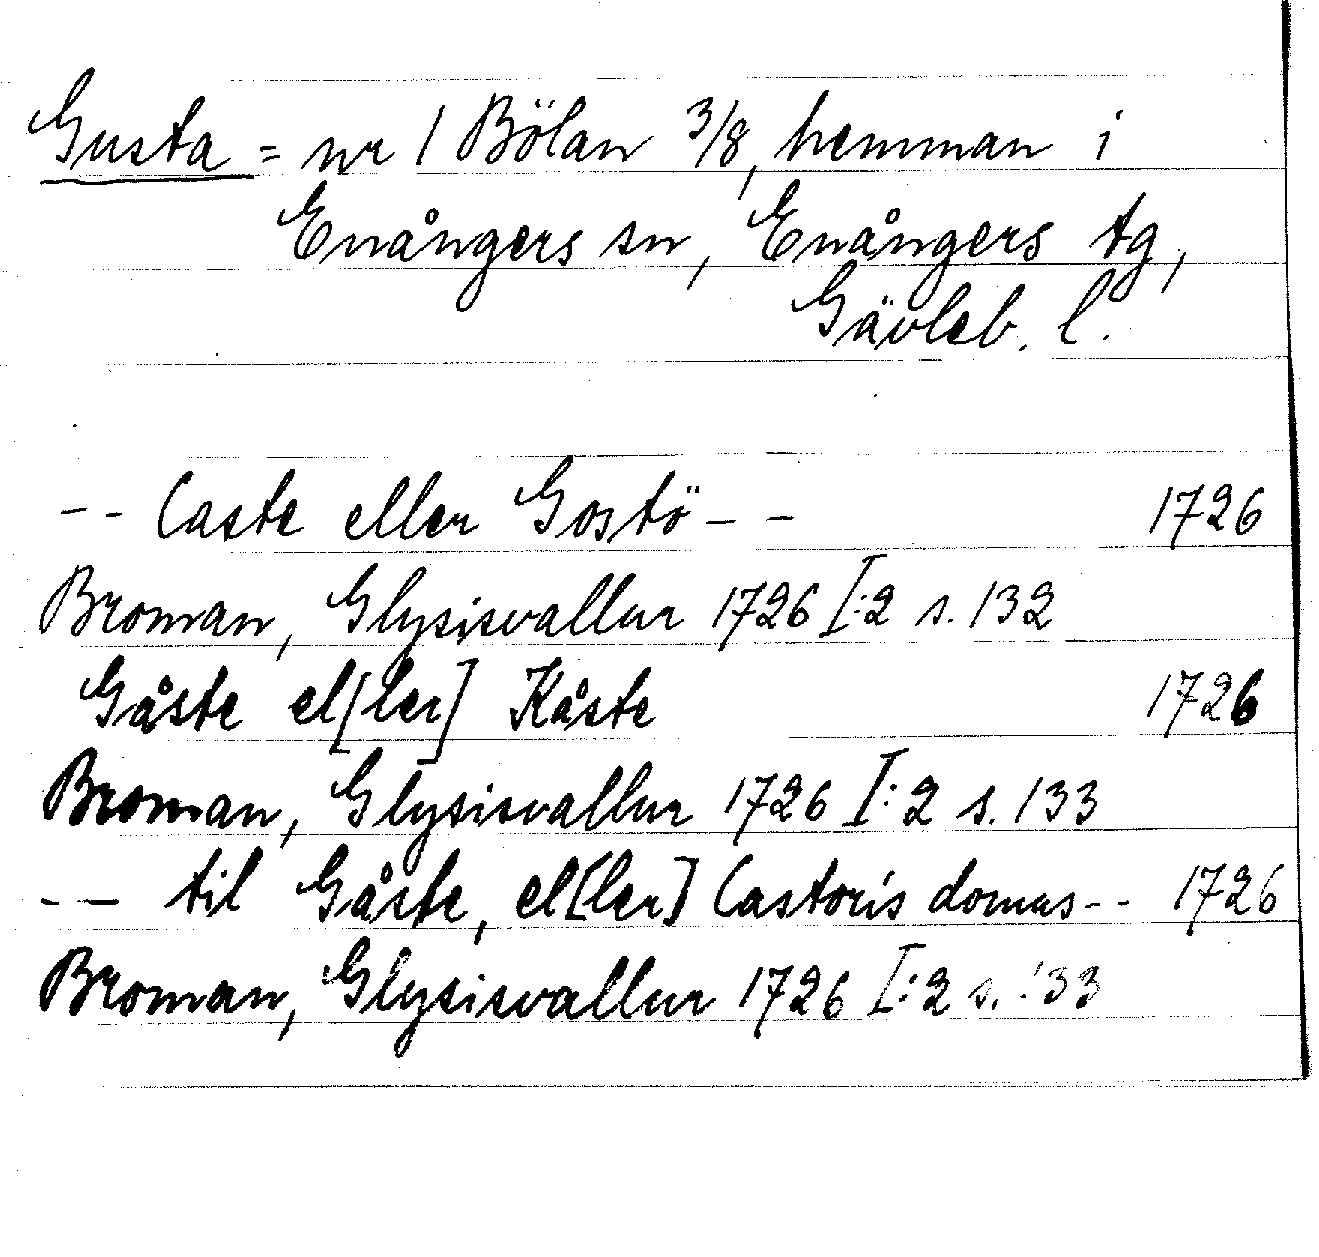 Gusta = nr 1 Bölan 3/8, hemman i
Enångers sn, Enångers tg,
Gävleb. l.
-- Caste eller Gostö --
1726
Broman, Glysisvallur 1726 I:2 s. 132
Gåste el[ler] Kåste
1726
Broman, Glysisvallur 1726 I:2 s. 133
-- til Gåste, el[ler] Castoris domus --
1726
Broman, Glysisvallur 1726 I:2 s. 133